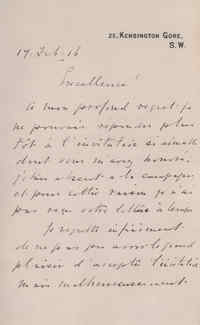 25, KENSINGTON GORE,
S.W.
17 Feb. 16
Excellence!
A mon profond regret je
ne pouvais repondre plus
tôt à l'invitation si aimable
dont vous m'avez honoré.
J'étais absent à la campagne
et pour cette raison je n'ai
pas reçu votre lettre à temps.
Je regrette infiniment
de ne pas pouvoir le grand
plaisir d'accepter l'invitation
mais malheureusement